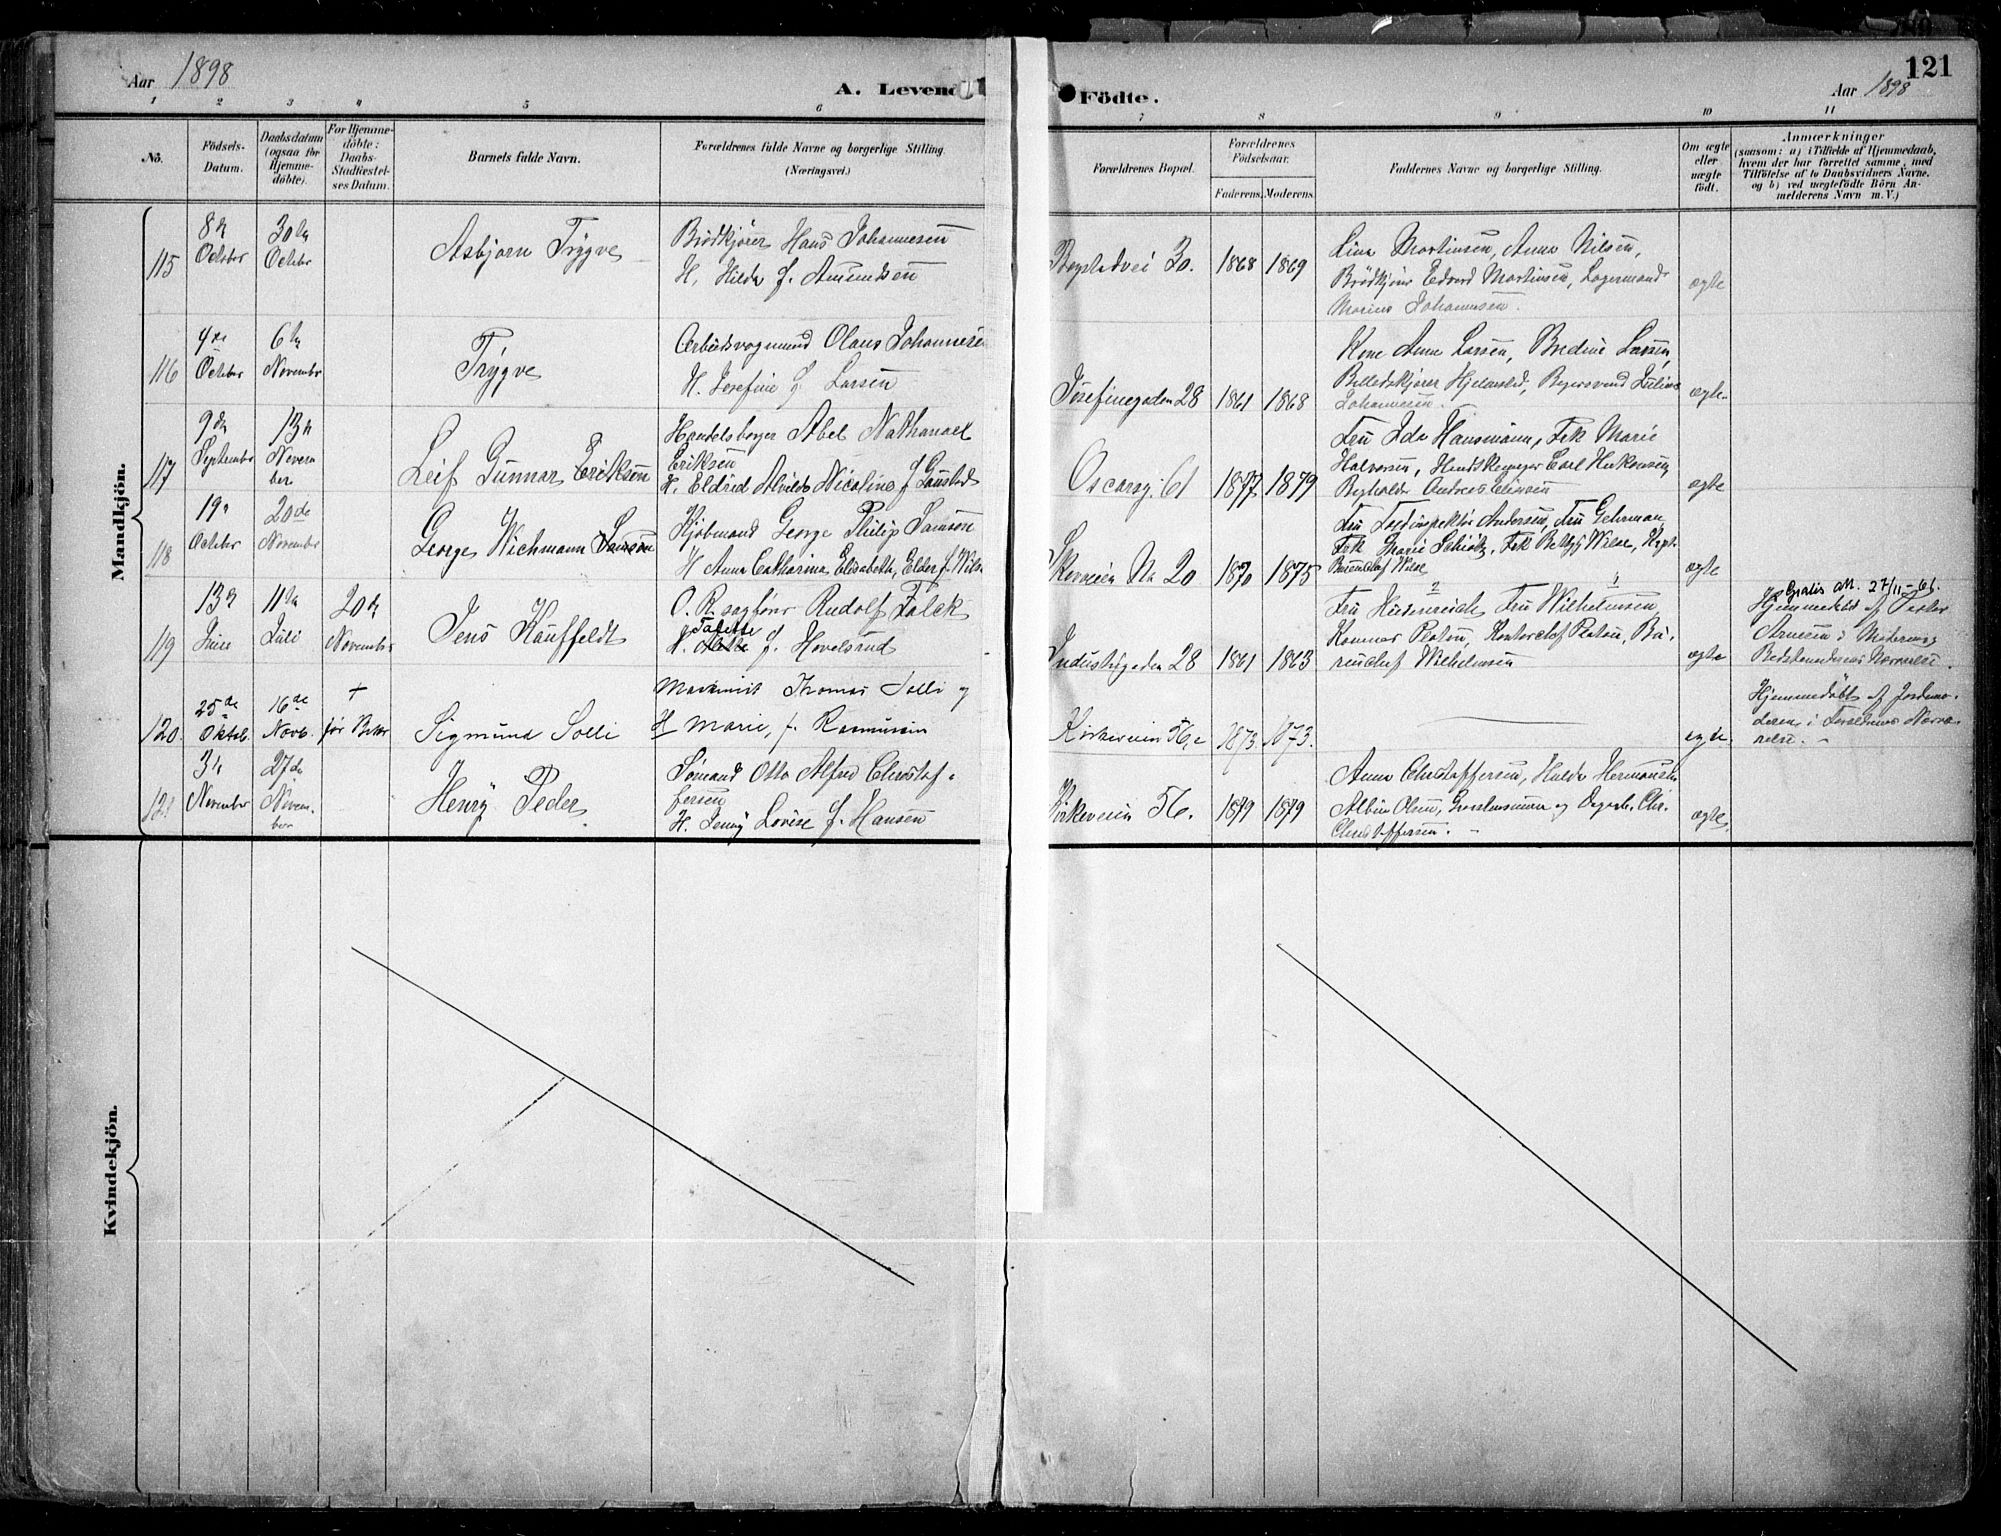 121
Aar 1898
A. Levende
Födte.
Aar 1898
1 2 3 4 5 6
7 8 9 10 11
Nö.
Födsels-Datum.
Daabsdatum (ogsaa for Hjemmedöbte).
For Hjemmedöbte: Daabs-Stadfæstelses Datum.
Barnets fulde Navn.
Forældrenes fulde Navne og borgerlige Stilling. (Næringsvei.)
Forældrenes Bopæl.
Forældrenes Födselsaar.
Faderens. Moderens.
Faddernes Navne og borgerlige Stilling.
Om ægte eller uægte födt.
Anmærkninger
(saasom: a) i Tilfælde af Hjemmedaab,
hvem der har forrettet samme, med
Tilföielse af to Daabsvidners Navne.
og b) ved uægtefödte Börn An-
melderens Navn m. V.)
Mandkjön.
115
8de October
30te October
Asbjørn Trygve
Brødkjører Hans Johannesen
H. Hilda f. Amundsen
Bogstadvei 30.
1868 1869
Lina Martinsen, Anna Nilsen,
Brødkjører Edvard Martinsen, Lagermand
Marius Johannesen.
ægte
116
4de October
6te November
Trygve
Arbeidsvognmand Olaus Johannesen
H. Josefine f. Larsen
Josefinegaden 28
1861 1868
Kone Anna Larsen, Bredine Larsen,
Johannesen.
ægte
117
9de September
13de November
Leif Gunnar Eriksen
Handelsborger Abel Nathanael
Eriksen
H. Eldrid Alvilde Nicoline f. Gaustad
Oscarsg. 61
1877 1879
Fru Ida Hausmann, Frk Marie
Halvorsen,
ægte
118
19de October
20de November
George Wichmann Samson
Kjøbmand George Philip Samson
H. Anna Catharina Elisabetha, Elder f. Wilse
Skovveien No 20
1870 1875
Fru Toldinspektør Andersen, Fru Gehrman,
Frk Marie Schiøtz, Frk Betzy Wilse,
Wilse
ægte
119
13de Juni
11te Juli
20de November
Jens Kauffeldt
O. R. sagfører Rudolf Falck
H. Tafette f. Hovelsrud
Industrigaden 28
1861 1863
Fru Heidenreich, Fru Wilhelmsen,
Kammer Platou, Kontorchef Platou, Bu-
reauchef Wilhelmsen
ægte
Gratis att. 27/11-61.
Hjemmedøbt af Pastor
Arnesen i
Bedsteforældrenes Nærværelse.
120.
25de Oktob.
16de Novb.
+
Sigmund Solli
Maskinist Thomas Solli og
H Marie, f. Rasmussen
Kirkeveien 56,c
1873 1873.
ægte.
Hjemmedøbt af Jordmo-
deren i Forældrenes Nærvæ-
relse.
121
3de November
27de November
Henry Peder
Sømand Otto Alfred Christof-
fersen
H. Jenny Lovise f. Hansen
Kirkeveien 56.
1879 1879
Anna Christoffersen, Hulda Hermansen
Albin Olsen,
Christoffersen.
ægte.
Kvindekjön.